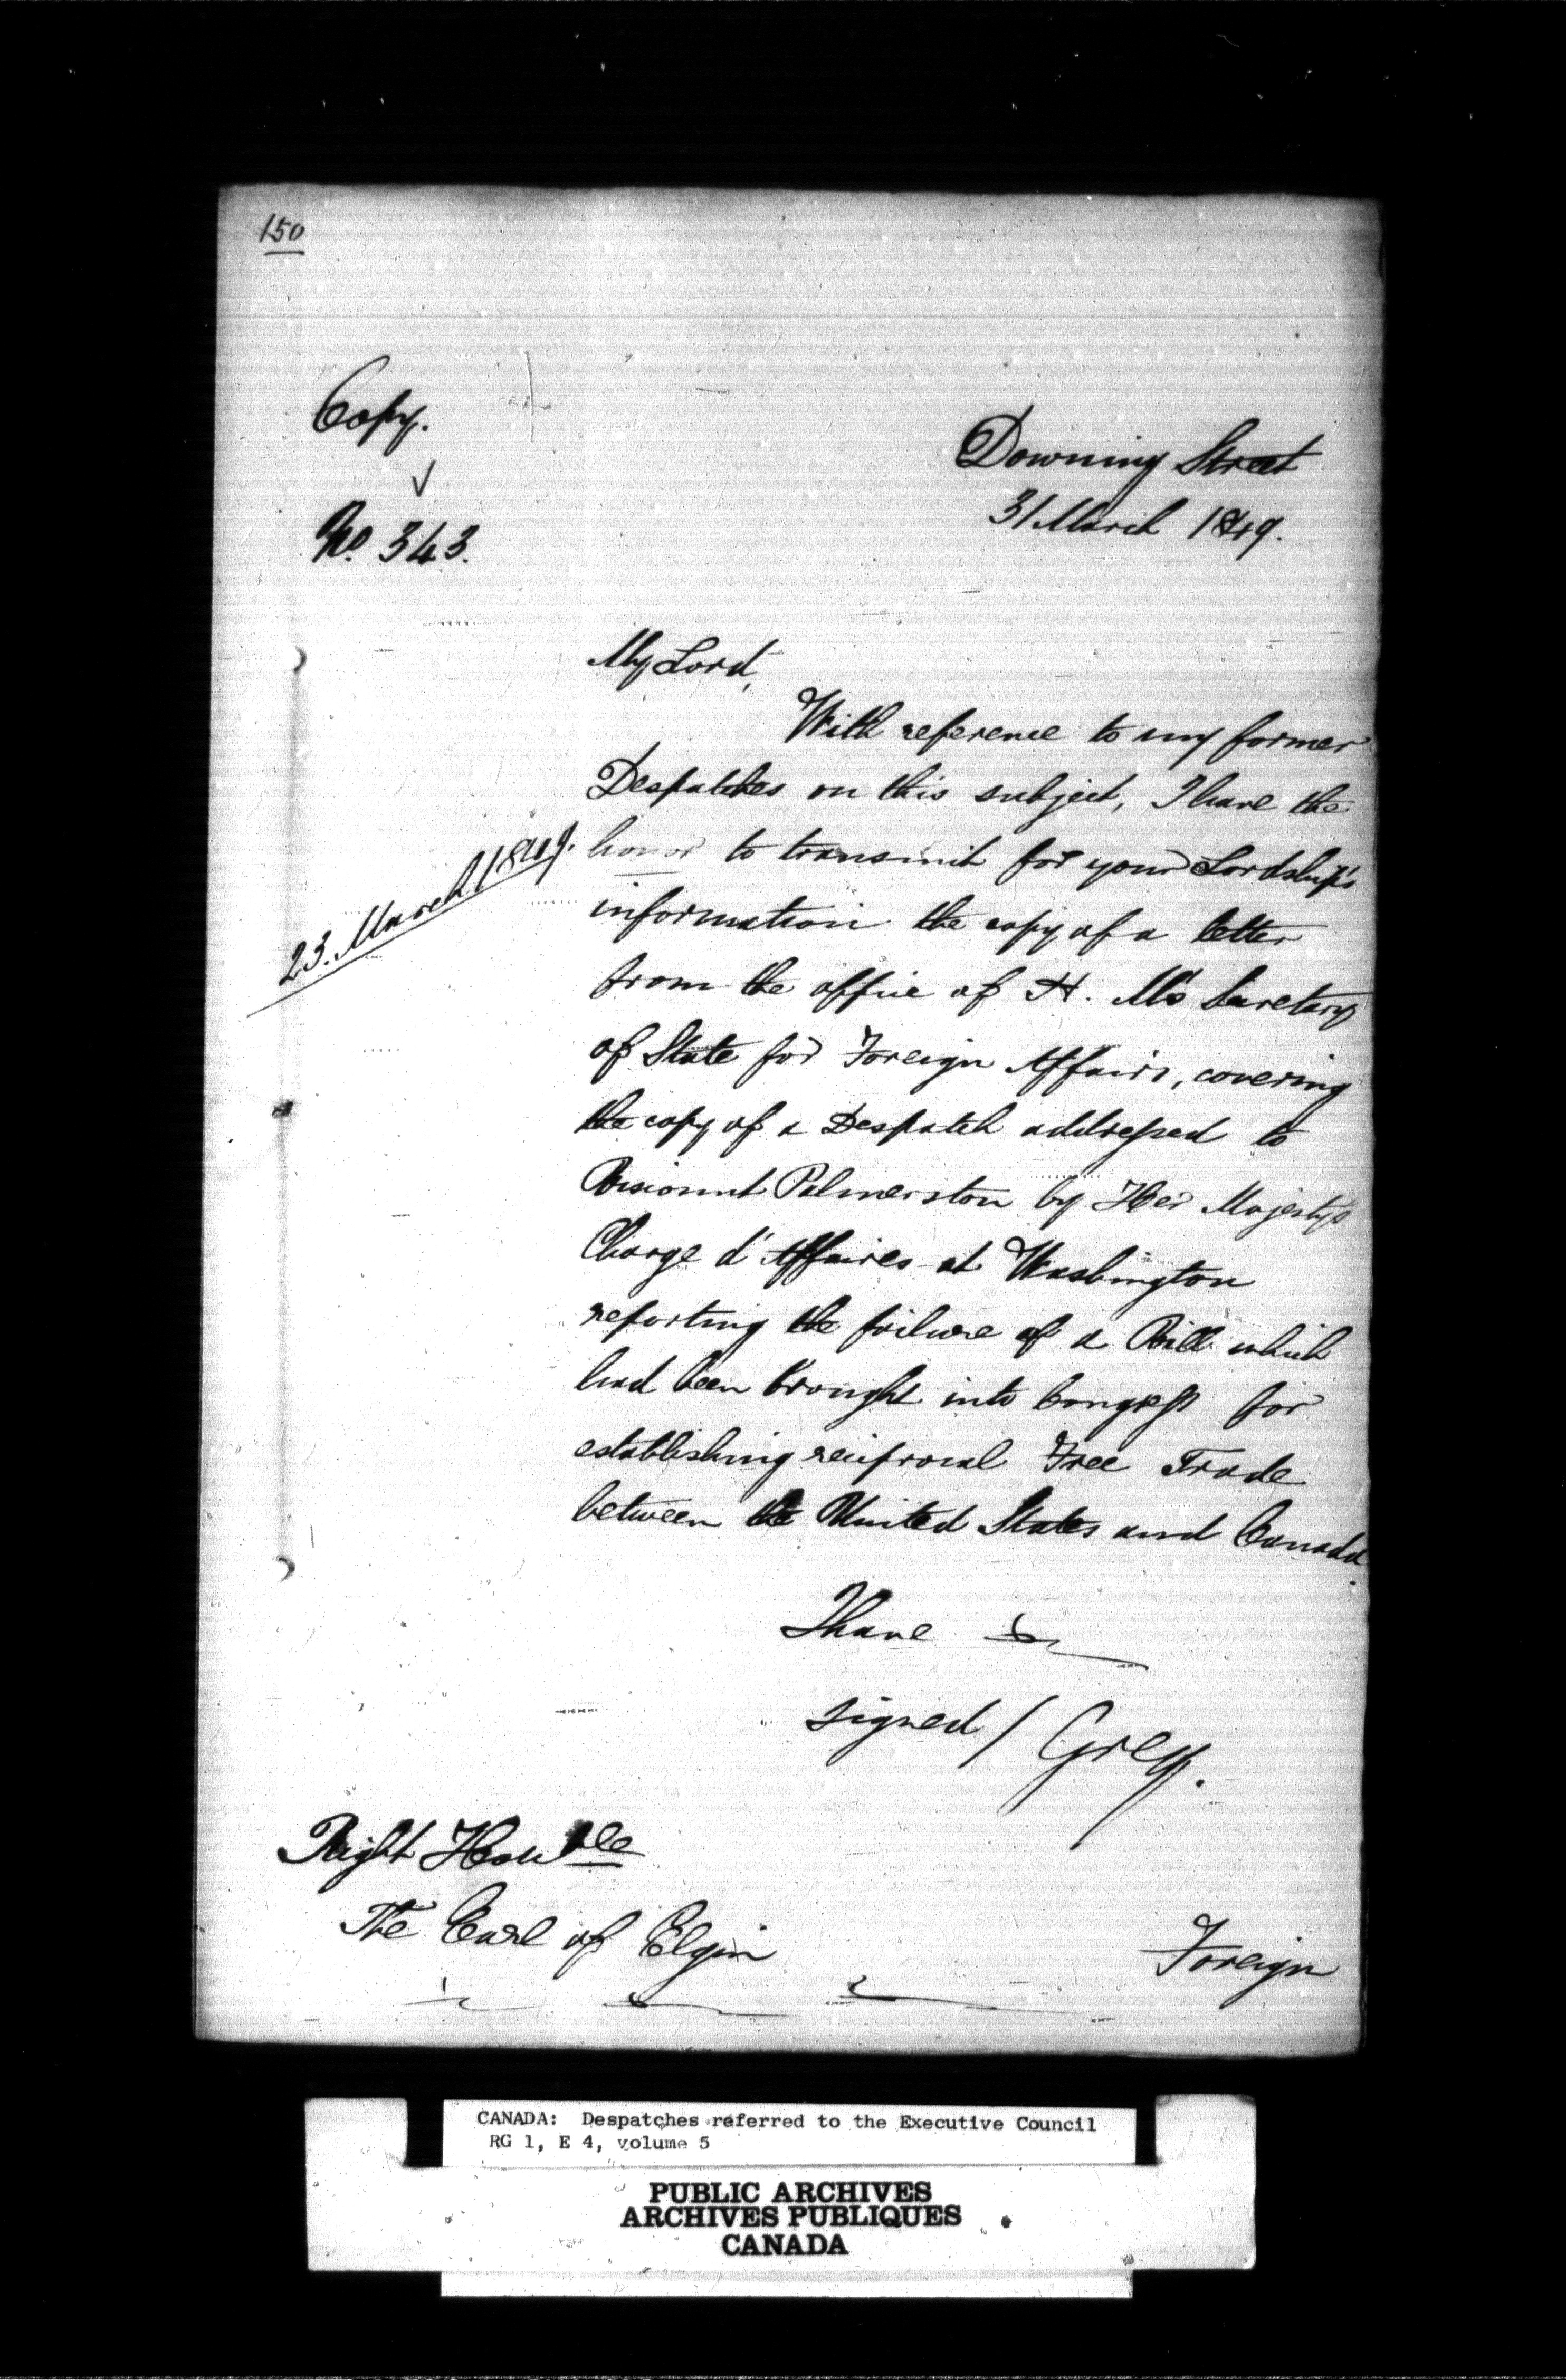 150
Copy.
Downing Street
31 March 1849.
No. 343.
My Lord,
With reference to my former
Despatches on this subject, I have the
23. March 1849.
honor to transmit for your Lordship's
information the copy of a letter
from the office of H. M's Secretary
of State for Foreign Affairs, covering
the copy of a Despatch addressed to
Viscount Palmerston by Her Majesty's
Charge d'Affaires at Washington
reporting the failure of a Bill which
had been brought into Congress for
establishing reciprocal Free Trade
between the United States and Canada.
I have &c
signed / Grey.
Right Honble
The Earl of Elgin
Foreign
CANADA: Despatches referred to the Executive Council
RG 1, E 4, volume 5
PUBLIC ARCHIVES
ARCHIVES PUBLIQUES
CANADA